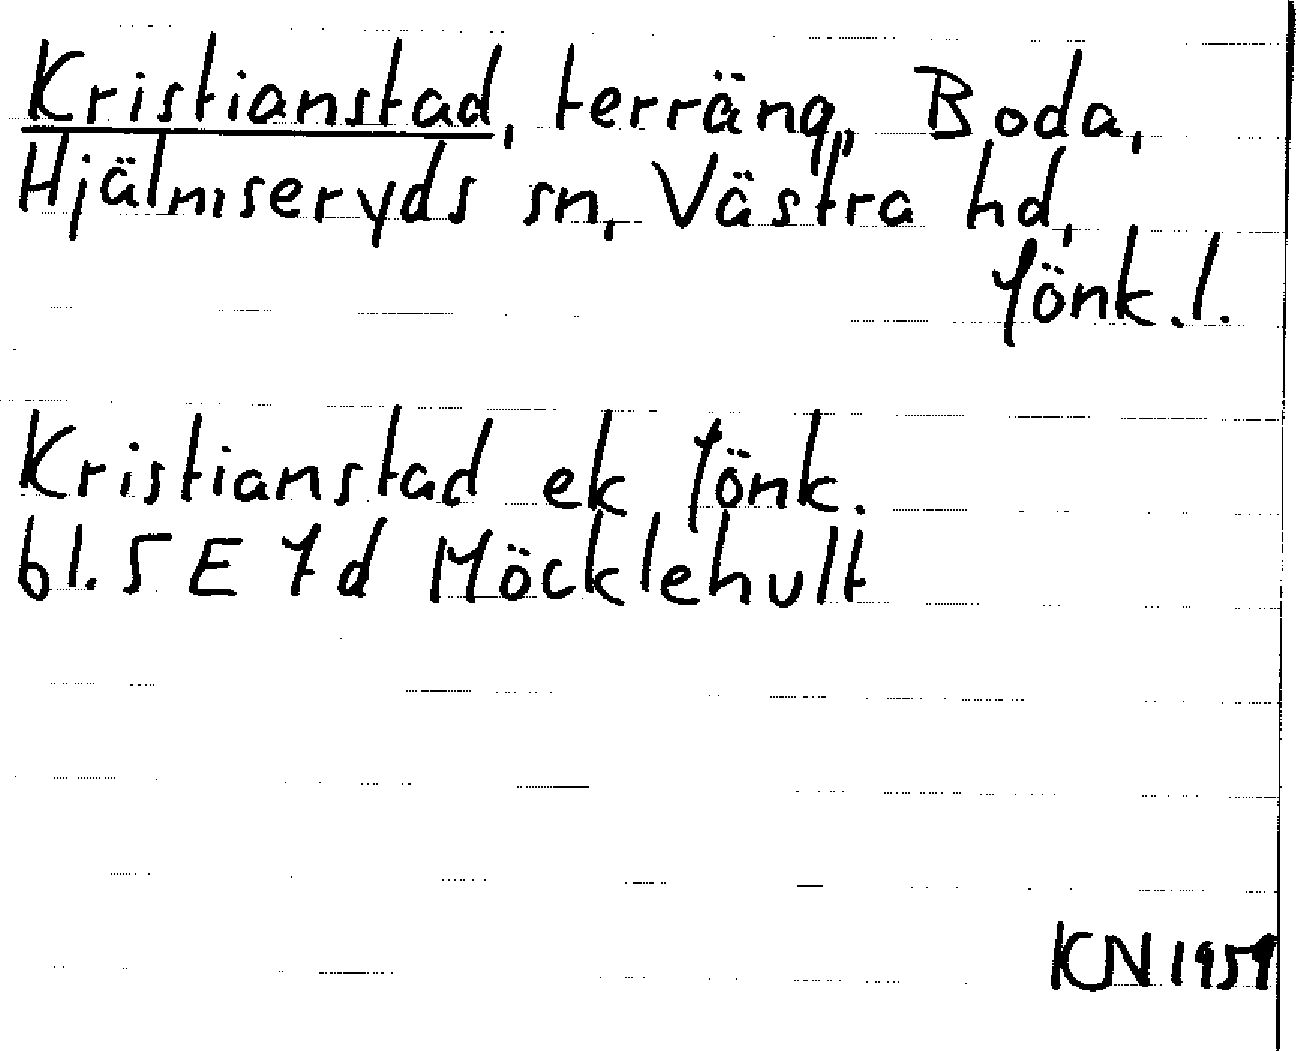 Kristianstad, terräng, Boda,
Hjälmseryds sn, Västra hd,
Jönk.l.
Kristianstad ek Jönk.
bl. 5 E 7d Möcklehult
KN 1959